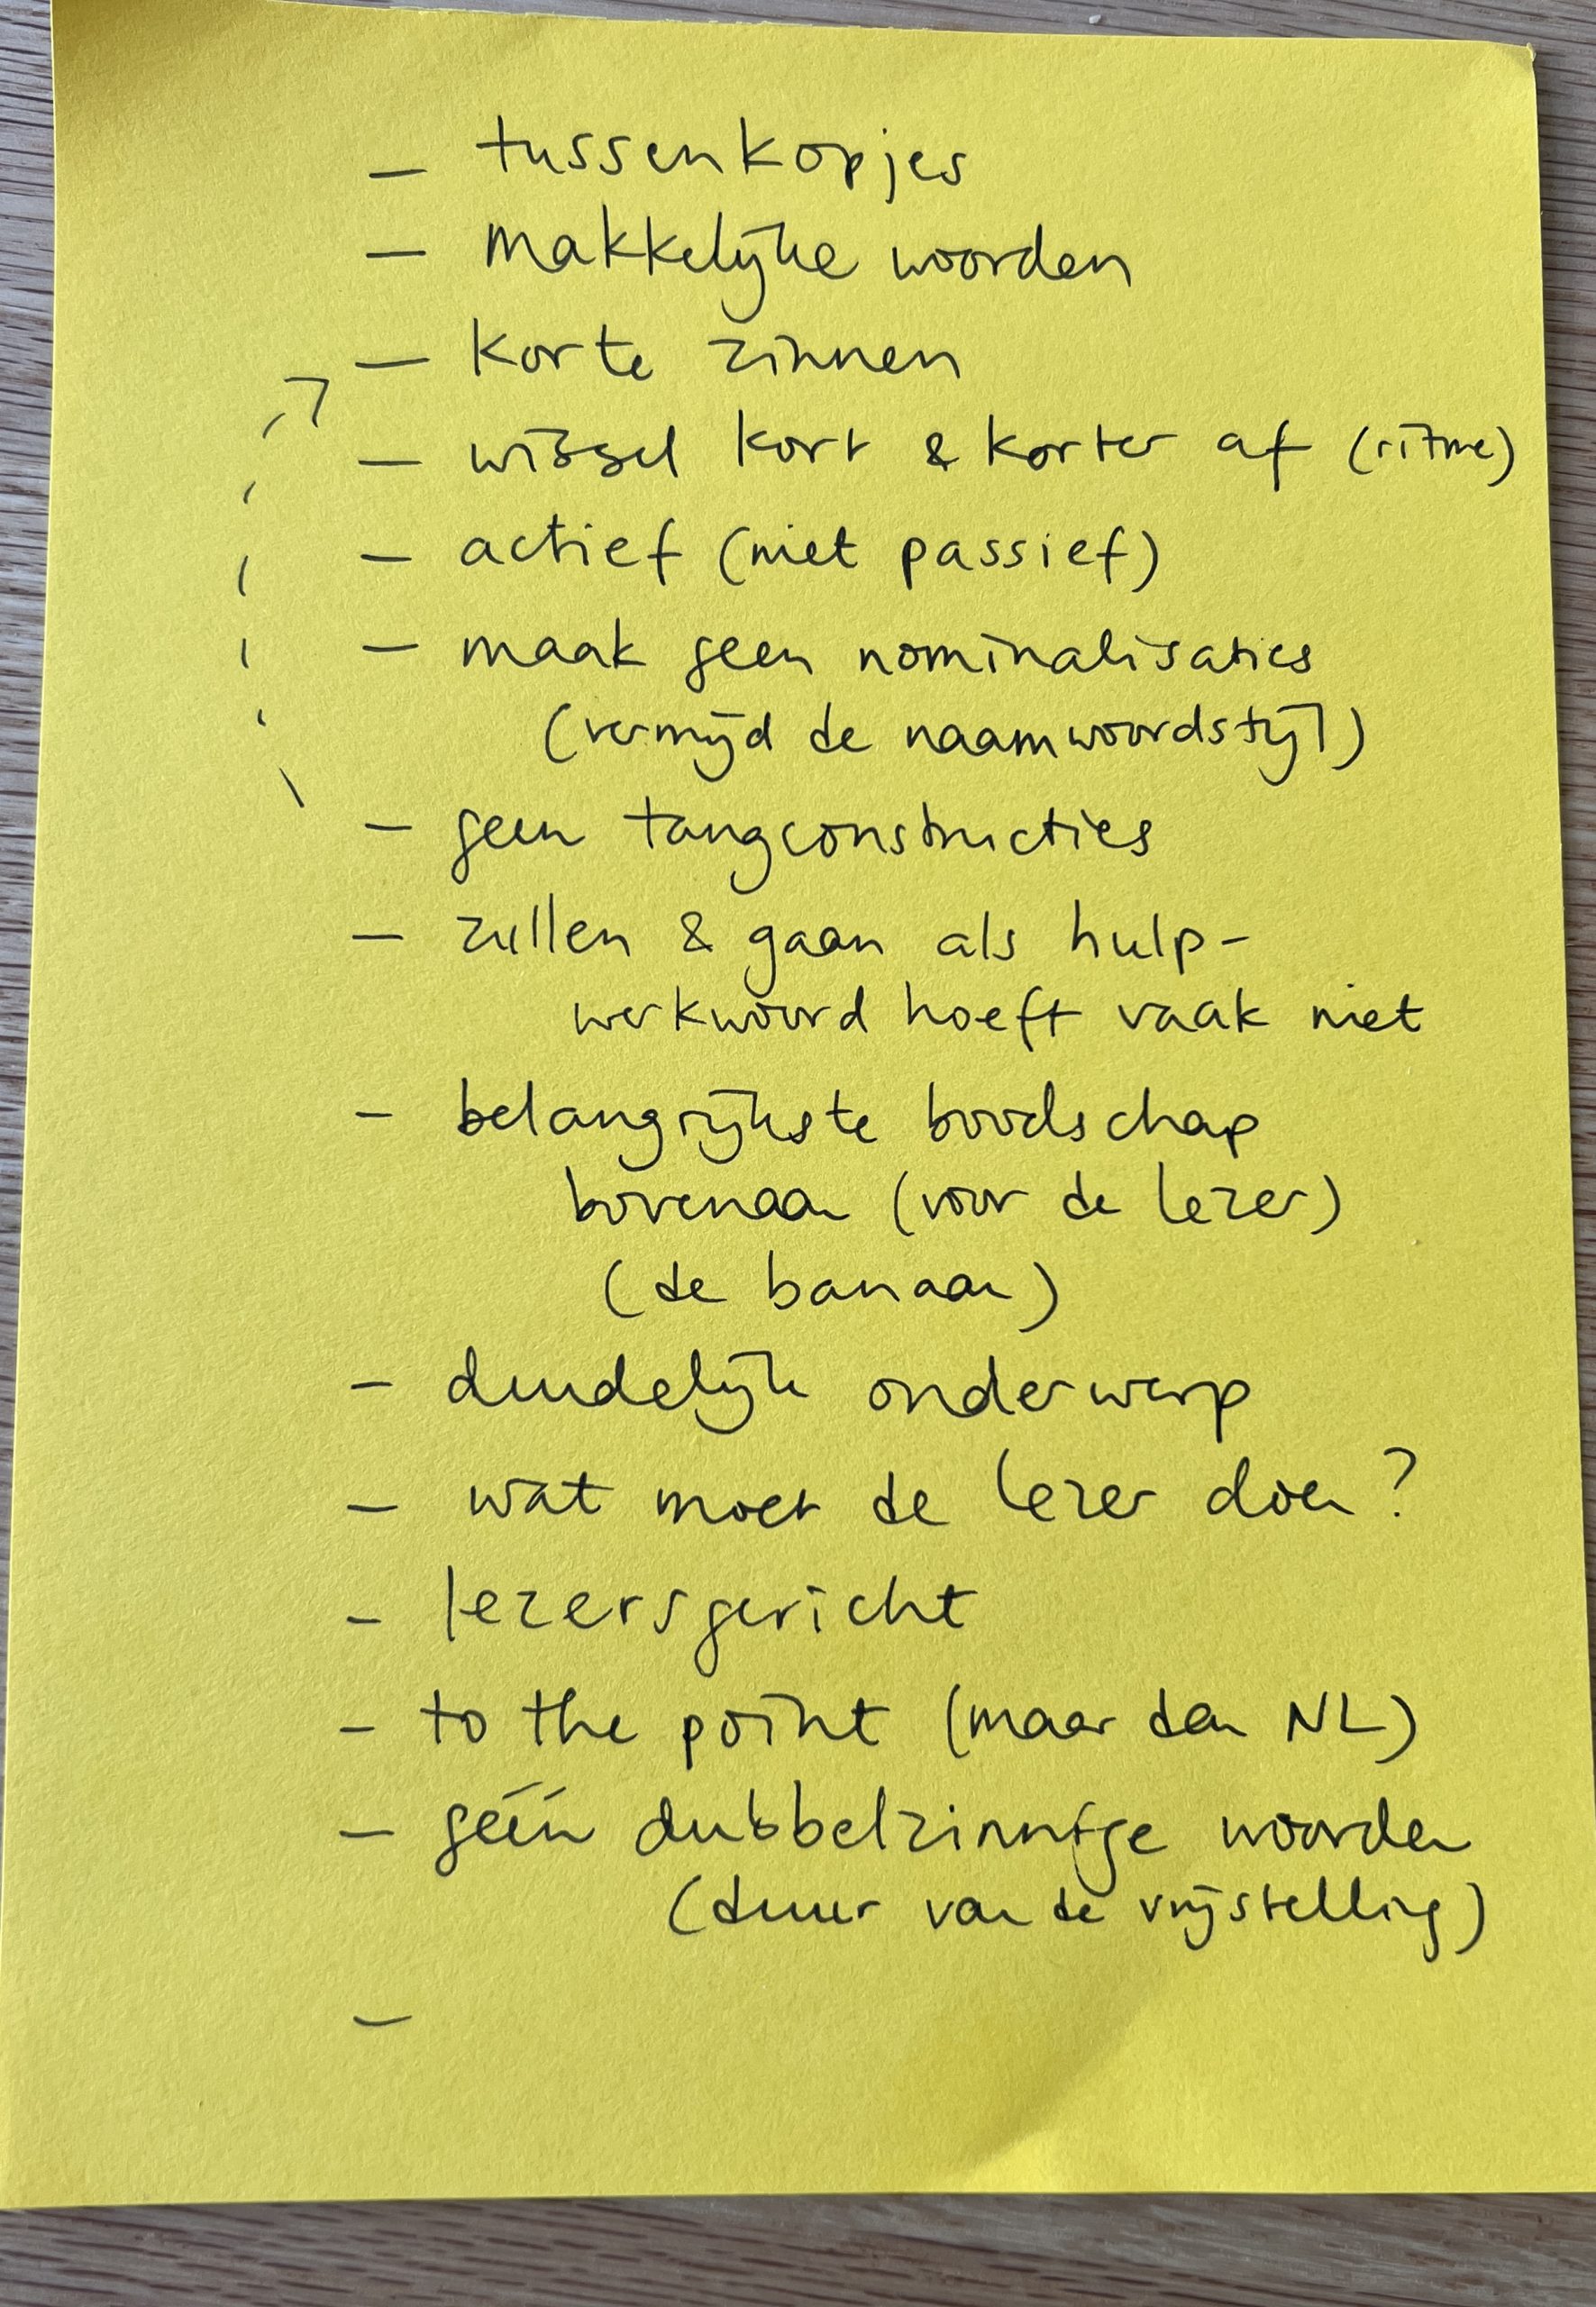 - tussenkopjes
- makkelijke woorden
- korte zinnen
- wissel kort & korter af (ritme)
- actief (niet passief)
- maak geen nominalisaties
(vermijd de naamwoordstijl)
- geen tangconstructies
- zullen & gaan als hulp-
werkwoord hoeft vaak niet
- belangrijkste boodschap
bovenaan (voor de lezer)
(de banaan)
- duidelijk onderwerp
- wat moet de lezer doen?
- lezersgericht
- to the point (maar dan NL)
- géén dubbelzinnige woorden
(duur van de vrijstelling)
-